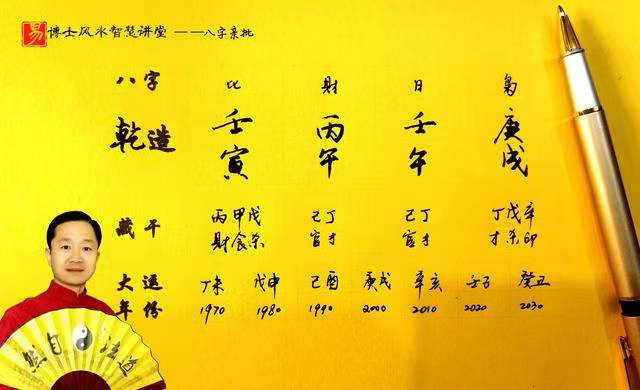 易 博士风水智慧讲堂 ——八字亲批
八字 比 財 日 枭
乾造 壬寅 丙午 壬午 庚戌
藏干 丙甲戊 己丁 己丁 丁戊辛
財食杀 官才 官才 才杀印
大運 丁未 戊申 己酉 庚戌 辛亥 壬子 癸丑
年份 1970 1980 1990 2000 2010 2020 2030
然自法道